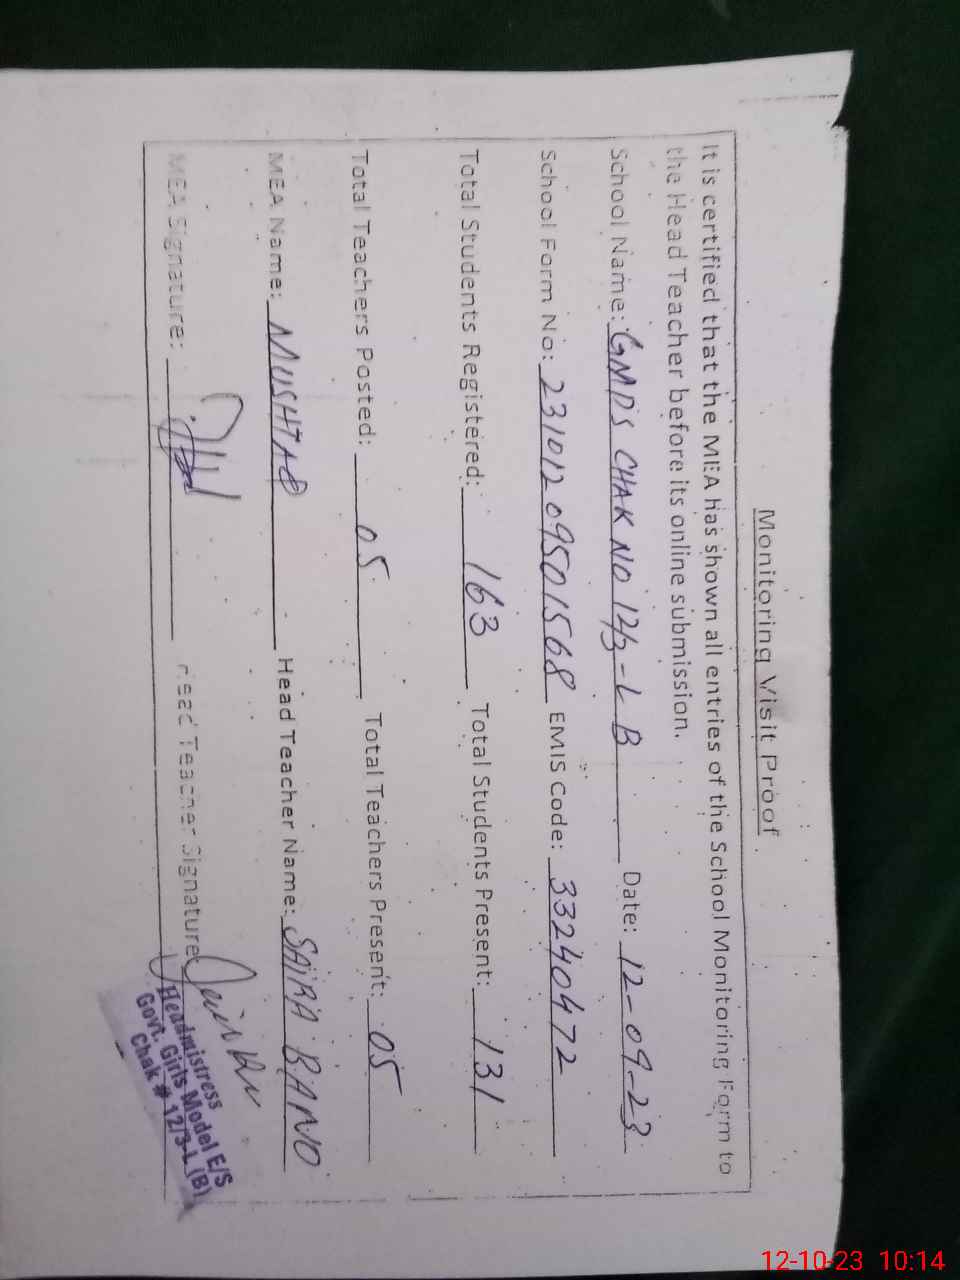 Monitoring Visit Proof
It is certified that the MEA has shown all entries of the School Monitoring Form to
the Head Teacher before its online submission.
School Name: GMPS CHAK NO 12/3-L B Date: 12-09-23
School Form No: 23101209501568 EMIS Code: 33240472
Total Students Registered: 163 Total Students Present: 131
Total Teachers Posted: 05 Total Teachers Present: 05
MEA Name: MUSHTAQ Head Teacher Name: SAIRA BANO
MEA Signature: Head Teacher Signature
Headmistress
Govt. Girls Model E/S
Chak # 12/3-L (B)
12-10-23 10:14